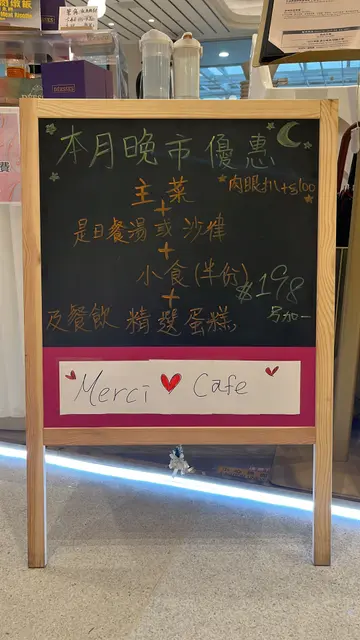 本月晚市優惠
主菜
肉眼扒+$100
+
是日餐湯或沙律
+
小食(半份)
+
$198
另加一
及餐飲 精選蛋糕
Merci Cafe